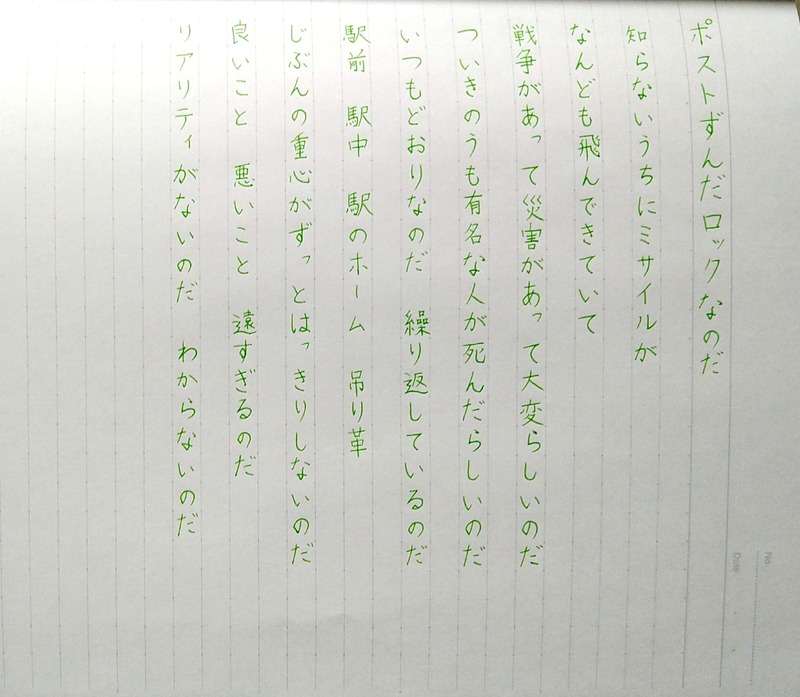 ポストずんだロックなのだ
知らないうちにミサイルが
なんども飛んできていて
戦争があって災害があって大変らしいのだ
ついきのうも有名な人が死んだらしいのだ
いつもどおりなのだ　繰り返しているのだ
駅前　駅中　駅のホーム　吊り革
じぶんの重心がずっとはっきりしないのだ
良いこと　悪いこと　遠すぎるのだ
リアリティがないのだ　わからないのだ
No.
Date